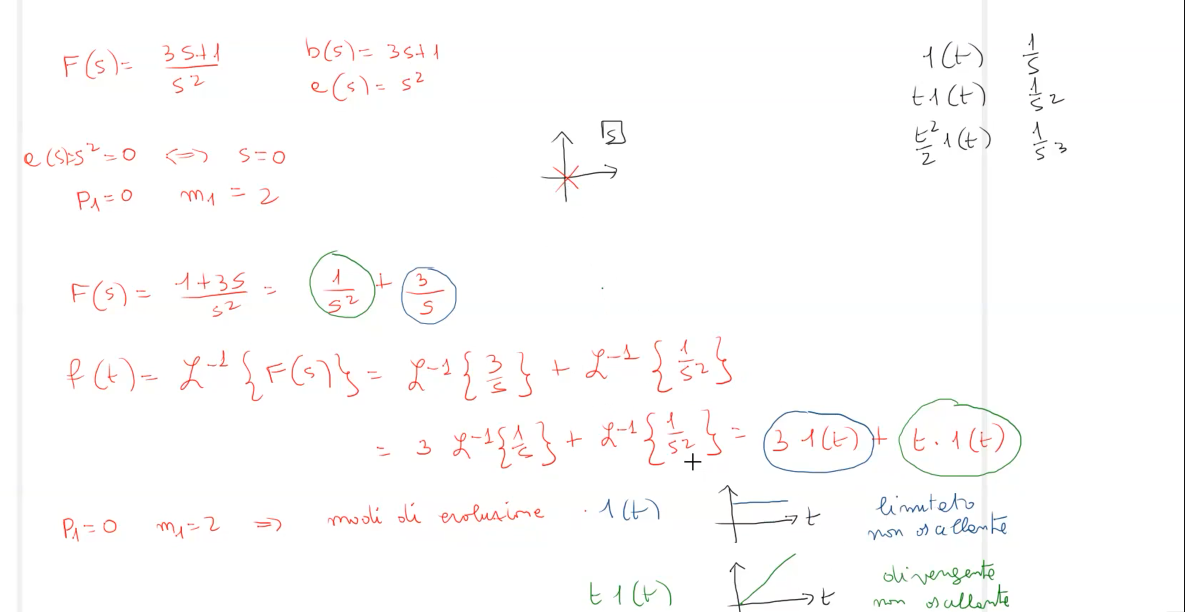 F(s) = (3s+1)/s² b(s) = 3s+1
e(s) = s²
1(t) 1/s
t1(t) 1/s²
t²/2 1(t) 1/s³
e(s)=s²=0 <=> s=0
p₁=0 m₁=2
s
F(s) = (1+3s)/s² = 1/s² + 3/s
f(t) = ℒ⁻¹{F(s)} = ℒ⁻¹{3/s} + ℒ⁻¹{1/s²}
= 3 ℒ⁻¹{1/s} + ℒ⁻¹{1/s²} = 3 1(t) + t·1(t)
p₁=0 m₁=2 => modi di evoluzione · 1(t) t limitato
non oscillante
t1(t) t divergente
non oscillante